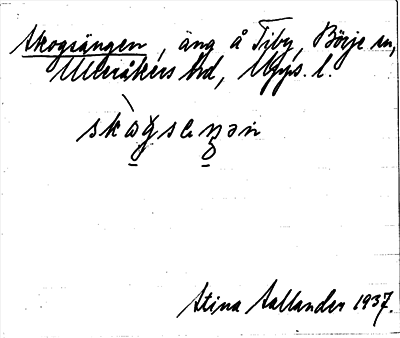 Skogsängen, äng å Tiby, Börje sn,
Ulleråkers hd, Upps. l.
Stina Sallander 1937.